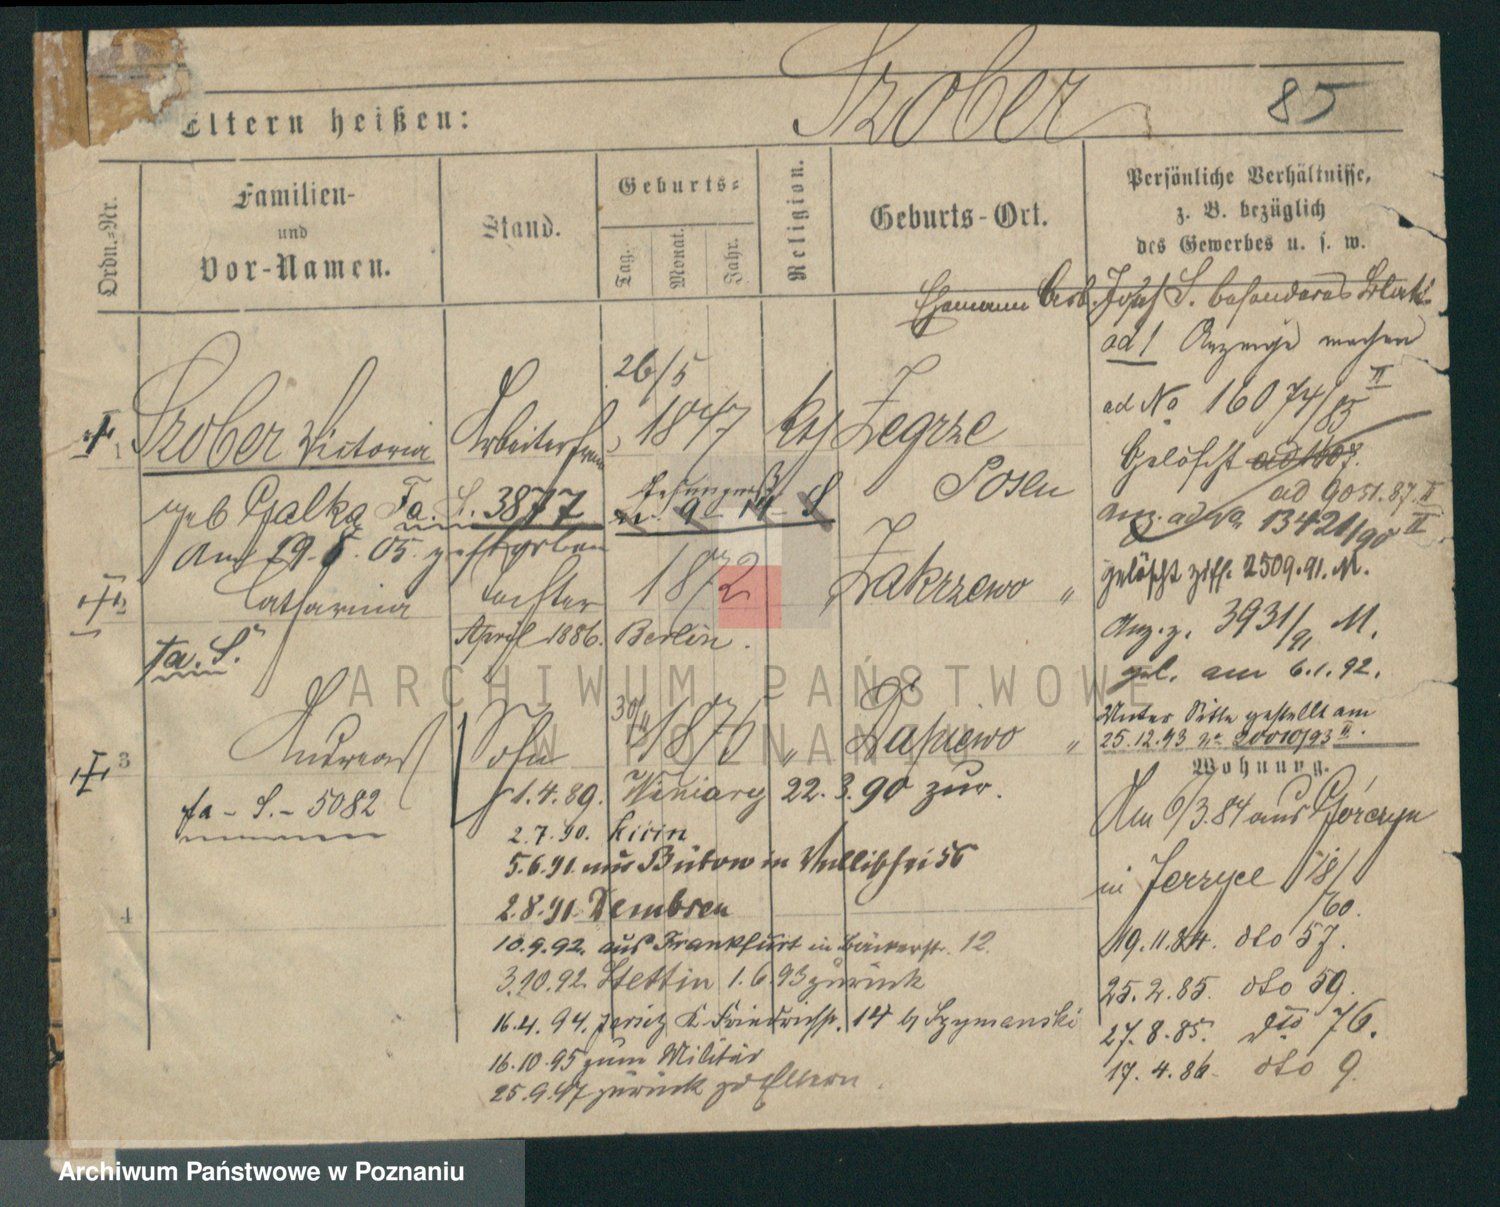 Eltern heißen: Szober 85
Ordn.-Nr.
Familien-
und
Vor-Namen.
Stand.
Geburts-
Tag. Monat. Jahr.
Religion.
Geburts-Ort.
Persönliche Verhältnisse,
z. B. bezüglich
des Gewerbes u. s. w.
Ehemann Arb. Josef S. besonderes Blatt
ad 1 Anzeige machen
26/5
Szober Victoria Arbeiterfrau 1847 kth Zegrze
ad No 16074/85 II
Gelöscht
Posen
geb Galka Fa. S. 3877
ad 9051.87. II
anz. ad No 13421/90 II
am 29. 8. 05. gestorben
Catharina Tochter 1872 Zakrzewo "
gelöscht ziff. 2509.91. M.
fa. S. April 1886. Berlin.
Anz. z. 3931/91 M.
gel. am 6.1.92.
3 Andreas Sohn 30/11 1876 " Dapiewo "
Unter Sitte gestellt am
25.12.93 20010/93 II.
Wohnung.
fa - S. - 5082
1.4.89. Winiary 22.3.90 zur.
Am 9/3.84 aus Górczyn
2.7.90.
5.6.91. aus Bütow in Wallischei 56
in Jerzyce 18/60.
4
2.8.91. Dembsen
10.9.92. aus Frankfurt in Bäckerstr. 12.
19.11.84. dto 57.
3.10.92. Stettin 1.6.93 zurück
25.2.85. dto 59.
16.4.94. Jersitz K. Friedrichstr. 14 b/ Szymanski
27.8.85. dto 76.
16.10.95 zum Militär
17.4.86. dto 9.
25.9.97 zurück zu Eltern.
ARCHIWUM PAŃSTWOWE
W POZNANIU
Archiwum Państwowe w Poznaniu